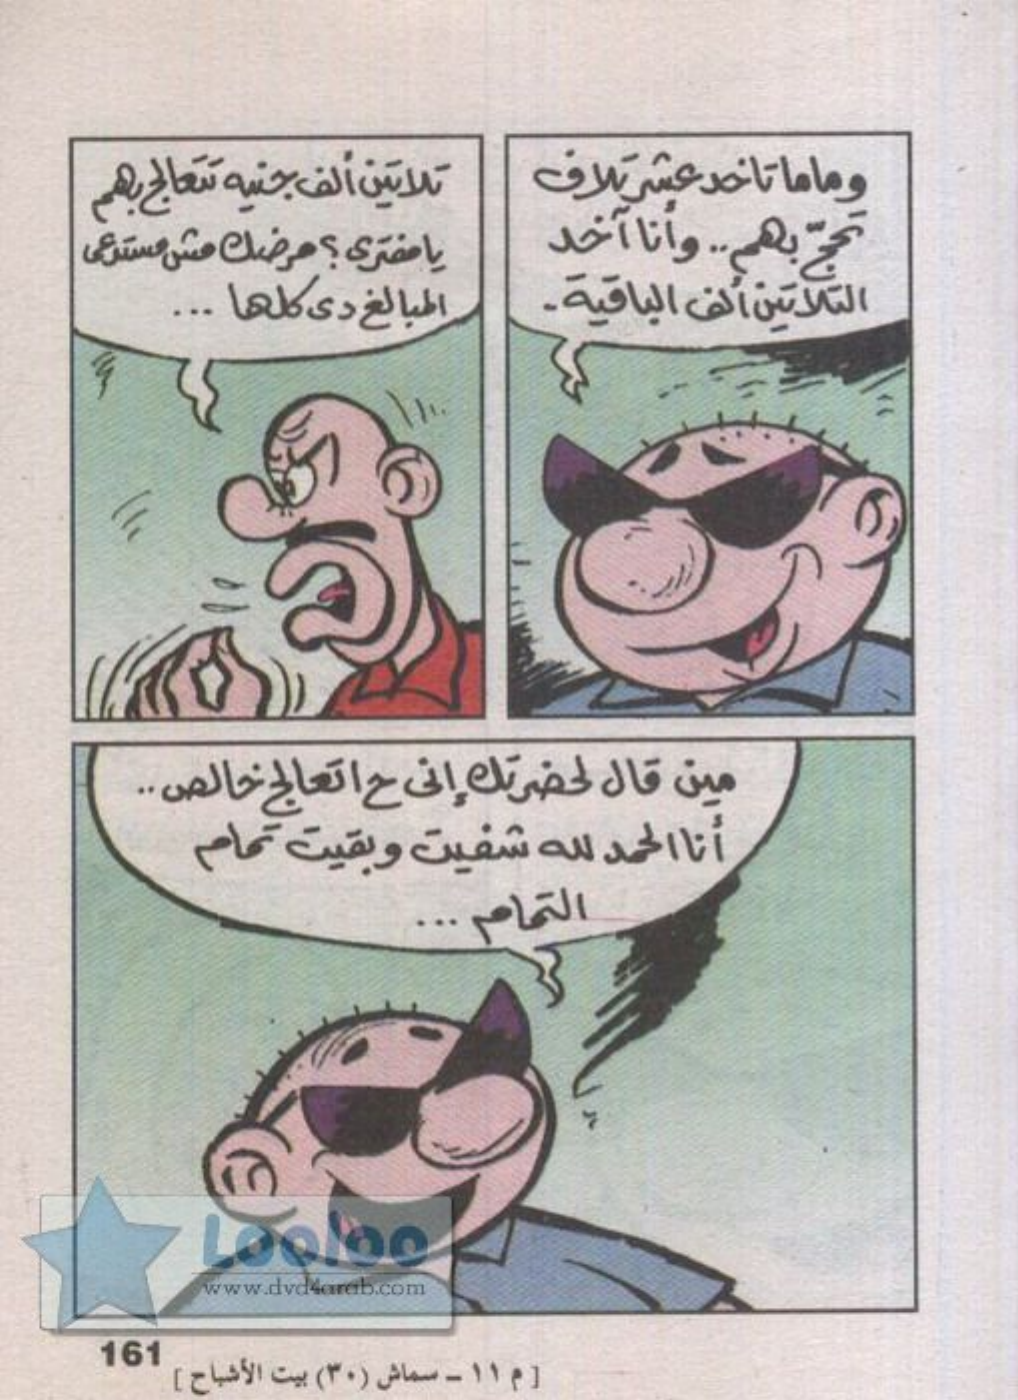 وماما تاخد عشر تلاف
تحجّ بهم.. وأنا آخد
التلاتين ألف الباقية.
تلاتين ألف جنيه تتعالج بهم
يا مفترى؟ مرضك مش مستدعى
المبالغ دى كلها ...
مين قال لحضرتك إنى ح اتعالج خالص..
أنا الحمد لله شفيت وبقيت تمام
التمام ...
Looloo
www.dvd4arab.com
161
[ م ١١ ــ سماش (٣٠) بيت الأشباح ]